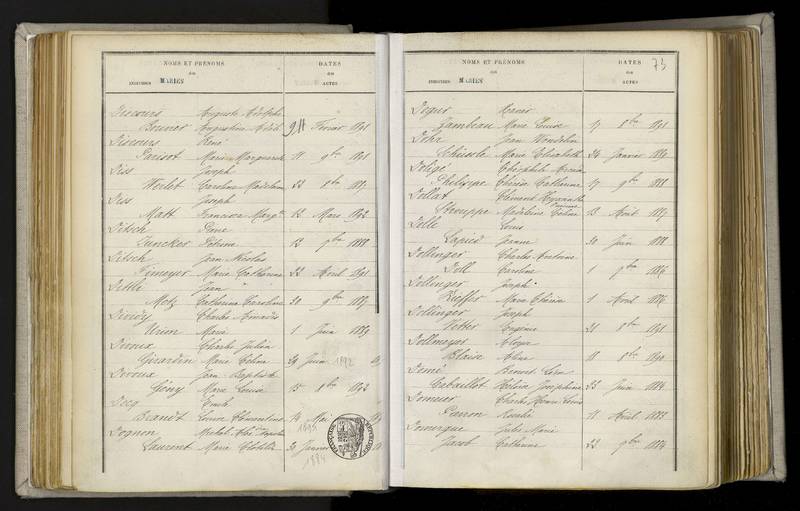 NOMS ET PRÉNOMS
des
INDIVIDUS MARIÉS
DATES
des
ACTES
Discours Auguste Adolphe
Bonnor Augustine Février 1891
Discours René
Parisot Marie Marguerite 11 9bre 1891
Diss Joseph
Werlet Caroline Madeleine 22 8bre 1887
Diss Joseph
Matt Françoise Margte 12 Mars 1892
Ditsch Pierre
Juncker 12 9bre 1888
Ditsch Jean Nicolas
Marie Catherine 22 Avril 1891
Jean
Metz Catherine Caroline 30 9bre 1887
Dividy Charles Amédée
Urion Marie 1 Juin 1889
Divoux Charles Julien
Girardin Marie Céline 29 Juin 1892
Divoux Jean Baptiste
Gény Marie Louise 15 8bre 1892
Docq Emile
Brandt Louise Clémentine 14 Mai
1895
Dognon Michel
Laurent Marie Clotilde 30 Janvier
1884
NOMS ET PRÉNOMS
des
INDIVIDUS MARIÉS
DATES
des
ACTES
73
Dogur Xavier
Zambeau Marie Louise 17 8bre 1891
Dohr Jean Wendelin
Schüssle Marie Elisabeth 24 Janvier 1889
Doligé Théophile
Philippe Thérèse Catherine 17 9bre 1888
Dollat Clément Hyacinthe
Strouppe Madeleine Céline 13 Août 1887
Dolle Louis
Lapied Jeanne 30 Juin 1888
Dollinger Charles Antoine
Doll Caroline 1 9bre 1886
Dollinger Joseph
Kieffer Marie Thérèse 1 Avril 1886
Dollinger Joseph
Vetter Eugénie 31 8bre 1891
Dollmeyer Eloyse
Blaise Aline 11 8bre 1890
Domé Benoit Léon
Cabaillot Hélène Joséphine 23 Juin 1884
Domeur Charles Henri Louis
Parron Rosalie 11 Avril 1883
Domergue Jules Marie
Jacob Catherine 22 9bre 1884